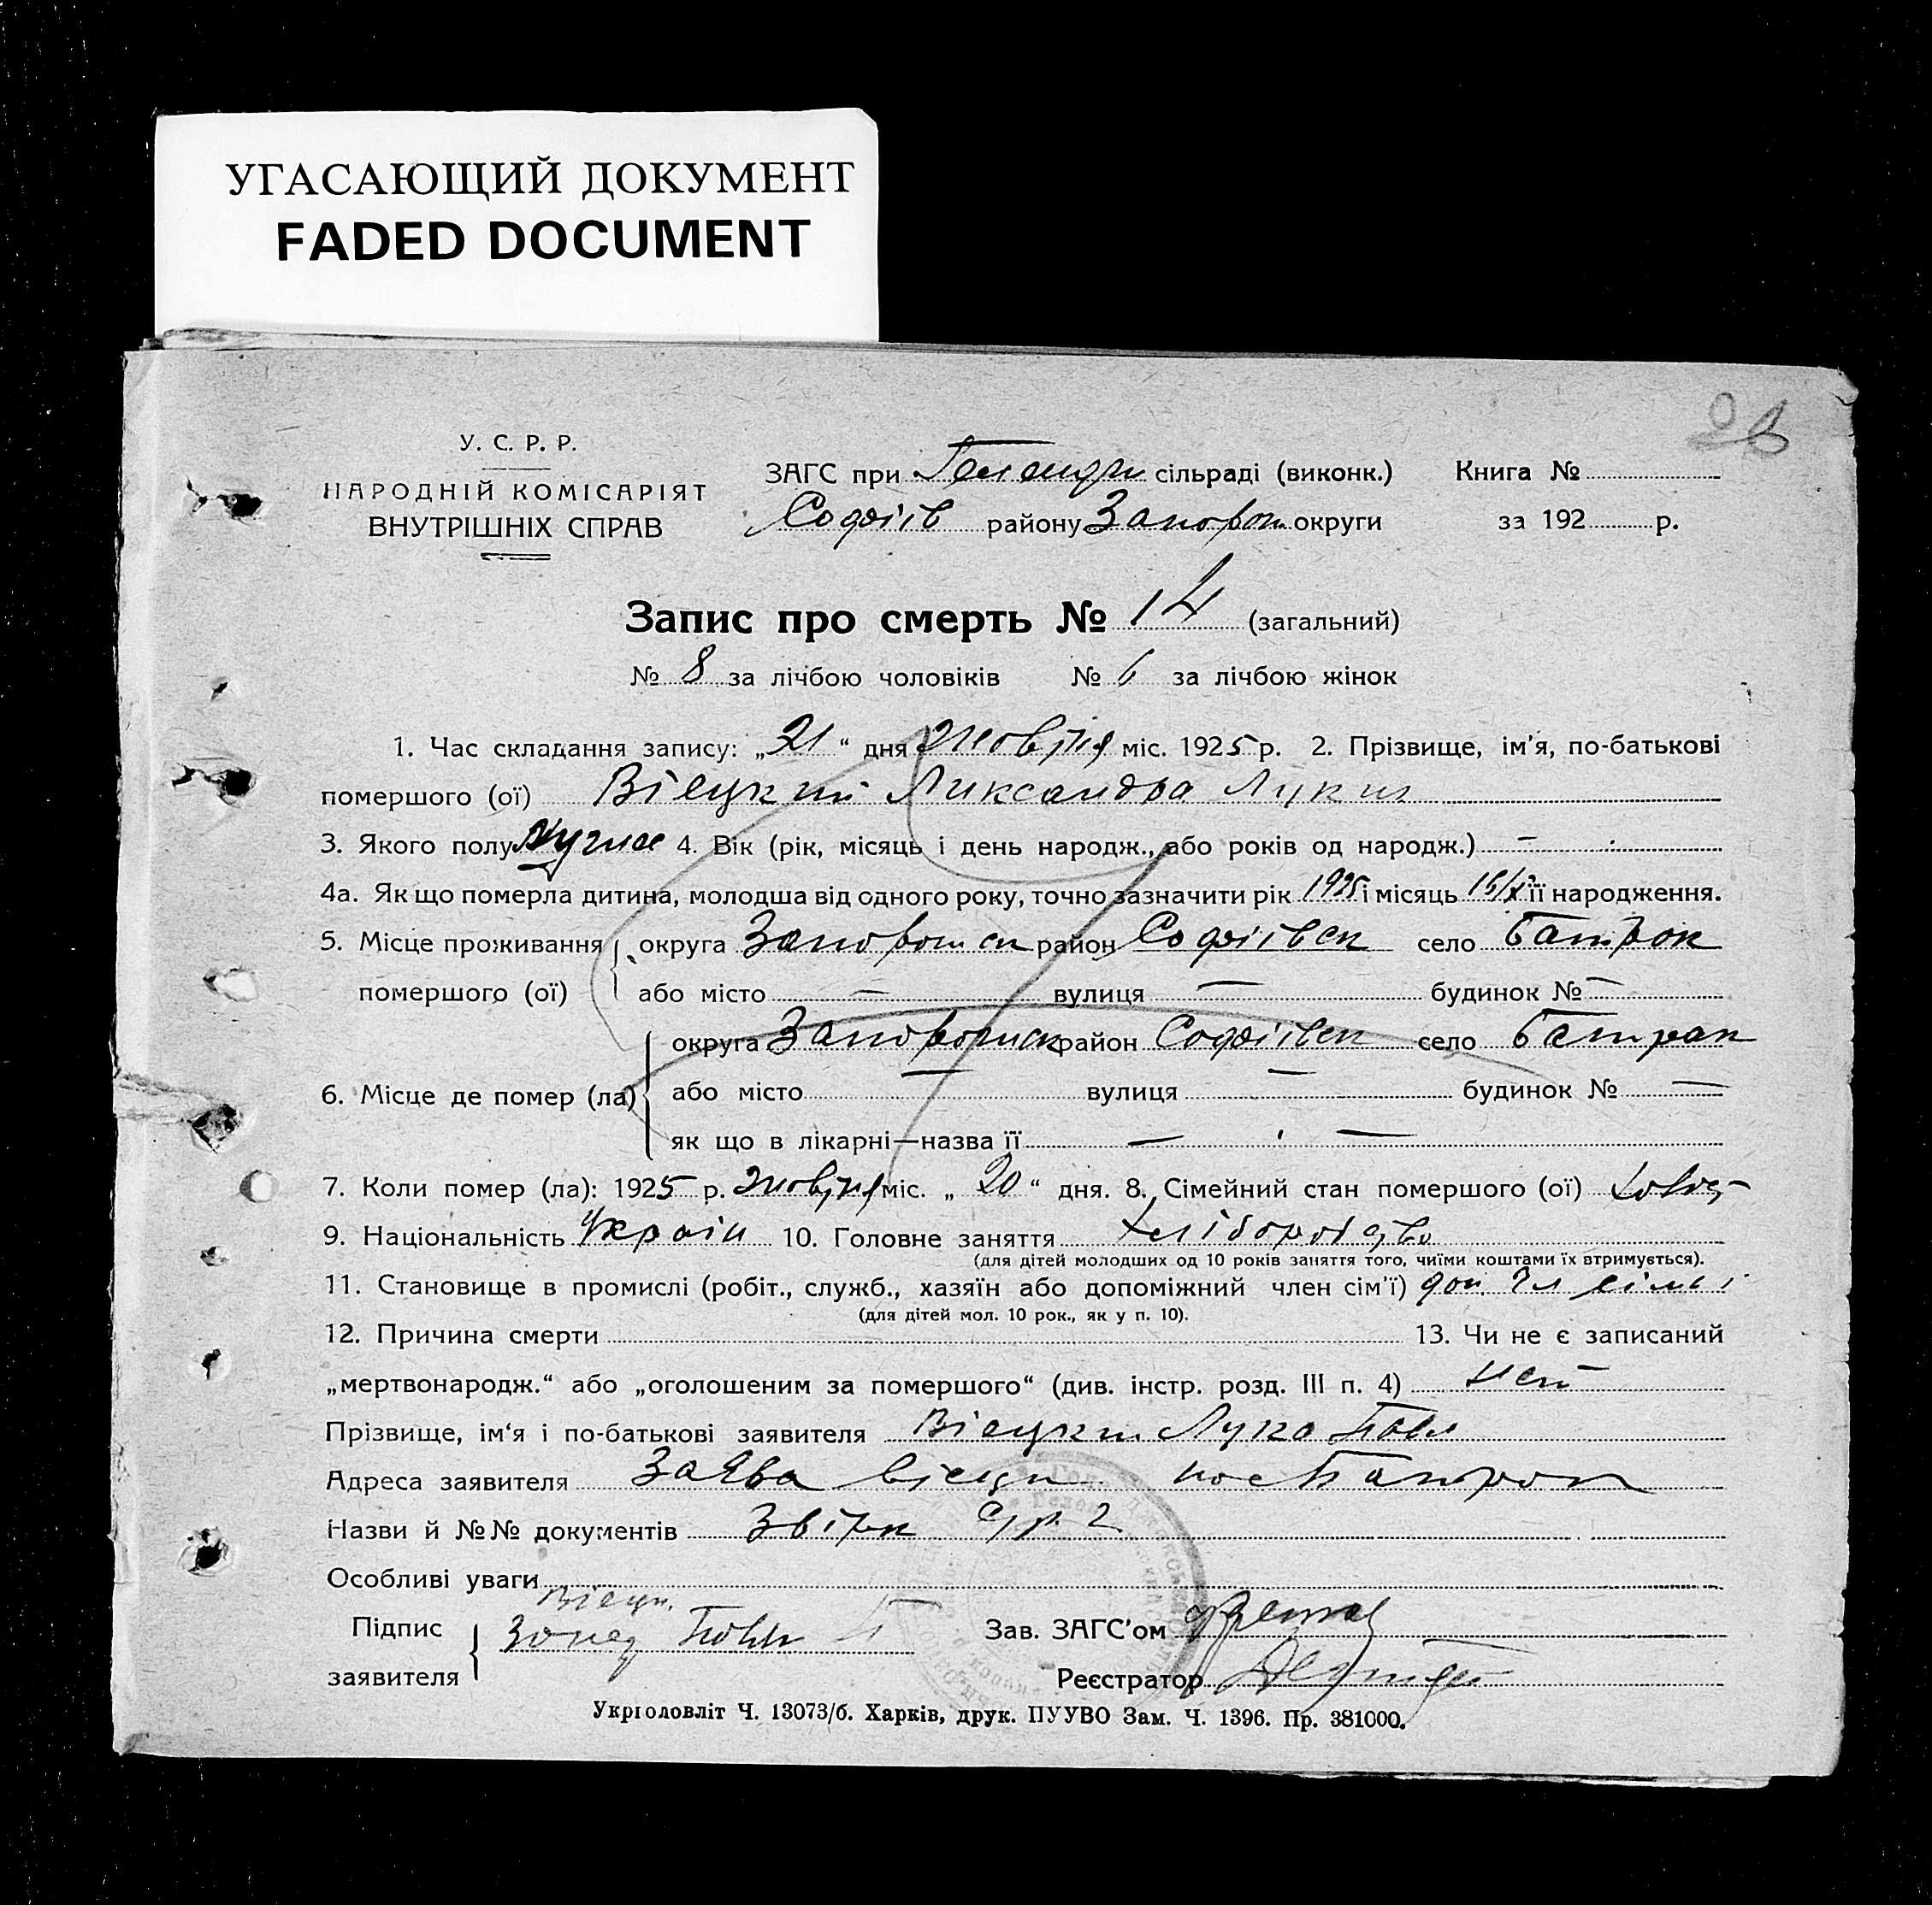 УГАСАЮЩИЙ ДОКУМЕНТ
FADED DOCUMENT
У. С. Р. Р.
НАРОДНІЙ КОМІСАРІЯТ
ВНУТРІШНІХ СПРАВ
ЗАГС при сільраді (виконк.) Книга №
Софіів району Запорож округи за 192 р.
Запис про смерть № 14 (загальний)
№ 8 за лічбою чоловіків № 6 за лічбою жінок
1. Час складання запису: „ 21 “ дня жовтня міс. 1925 р. 2. Прізвище, ім'я, по-батькові
помершого (ої) Віецкий Ликсандра Луки
3. Якого полу Мужск 4. Вік (рік, місяць і день народж., або років од народж.) —
4а. Як що померла дитина, молодша від одного року, точно зазначити рік 1925 і місяць 16/X її народження.
5. Місце проживання округа район Софіівск село Батрак
помершого (ої) або місто — вулиця — будинок № —
округа район Софіівск село Батрак
6. Місце де помер (ла) або місто — вулиця — будинок № —
як що в лікарні—назва її — —
7. Коли помер (ла): 1925 р. жовтня міс. „ 20 “ дня. 8. Сімейний стан помершого (ої)
9. Національність Україн 10. Головне заняття Хліборобство
(для дітей молодших од 10 років заняття того, чиїми коштами їх втримується).
11. Становище в промислі (робіт., служб., хазяїн або допоміжний член сім'ї) доп. чл сімьі
(для дітей мол. 10 рок., як у п. 10).
12. Причина смерти 13. Чи не є записаний
„мертвонародж.“ або „оголошеним за помершого“ (див. інстр. розд. III п. 4) нет
Прізвище, ім'я і по-батькові заявителя Віецки Лука Павл
Адреса заявителя Заява пос Батрак
Назви й №№ документів
Особливі уваги
Підпис
заявителя
Зав. ЗАГС'ом
Реєстратор
Укрголовліт Ч. 13073/б. Харків, друк. ПУУВО Зам. Ч. 1396. Пр. 381000.